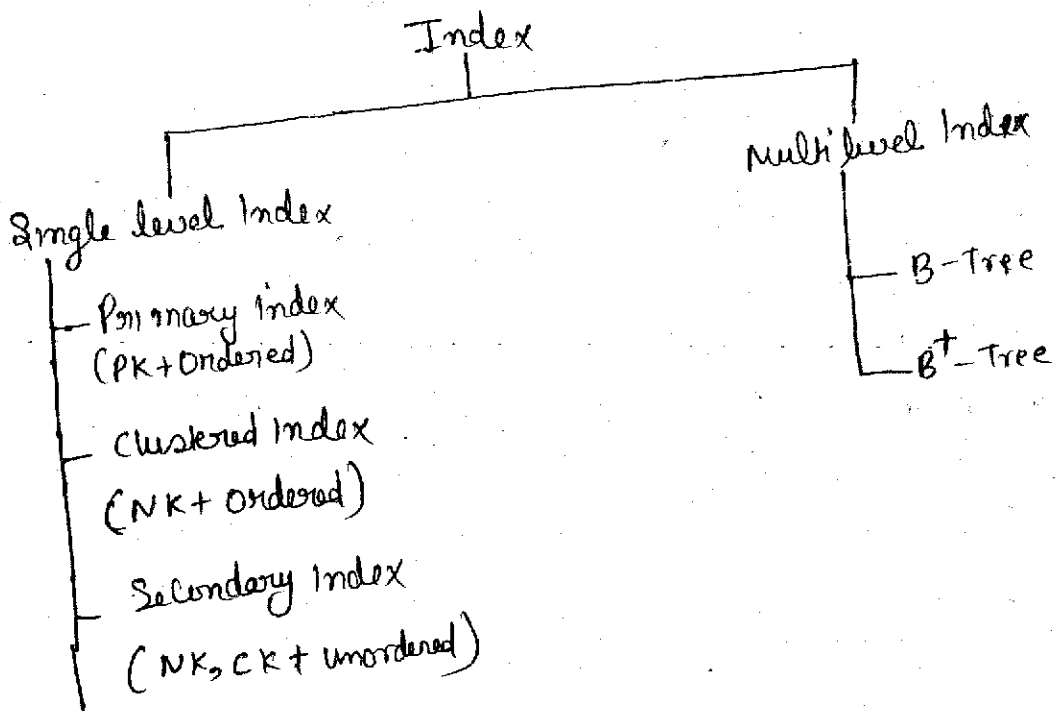 Index
Single level Index
Primary index
(PK+Ordered)
Clustered Index
(NK+ Ordered)
Secondary Index
(NK, CK + Unordered)
Multi level Index
B-Tree
B+-Tree